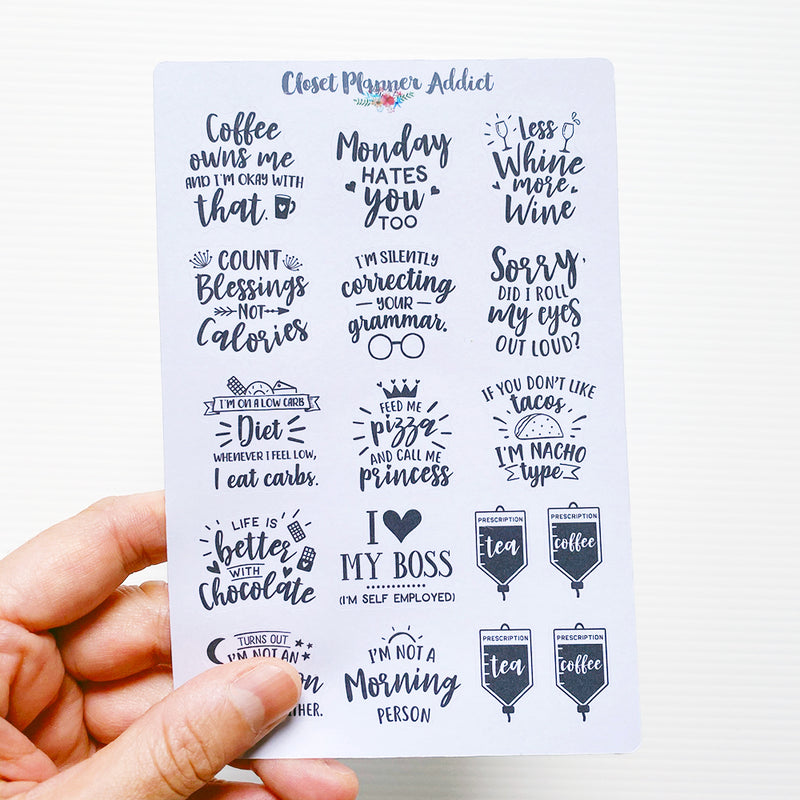 Closet Planner Addict
Coffee
owns me
AND I'M OKAY WITH
that.
Monday
HATES
you
TOO
Less
Whine
more
Wine
COUNT
Blessings
NOT
Calories
I'M SILENTLY
correcting
YOUR
grammar.
Sorry,
DID I ROLL
my eyes
OUT LOUD?
I'M ON A LOW CARB
Diet
WHENEVER I FEEL LOW,
I eat carbs.
FEED ME
pizza
AND CALL ME
princess
IF YOU DON'T LIKE
tacos,
I'M NACHO
type
LIFE IS
better
WITH
Chocolate
I
MY BOSS
(I'M SELF EMPLOYED)
PRESCRIPTION
tea
PRESCRIPTION
coffee
TURNS OUT
I'M NOT AN
I'M NOT A
Morning
PERSON
PRESCRIPTION
tea
PRESCRIPTION
coffee